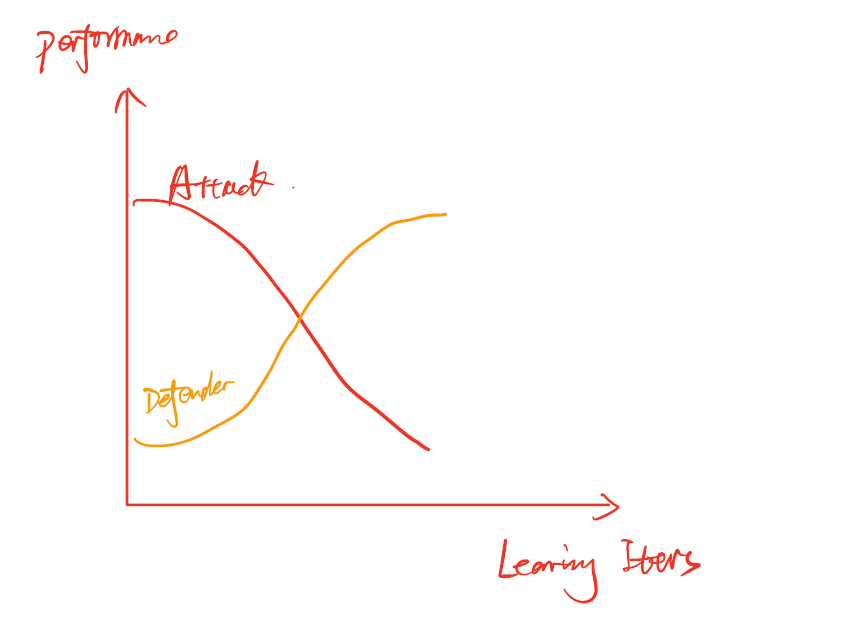 Performance
Attack
Defender
Learning Iters